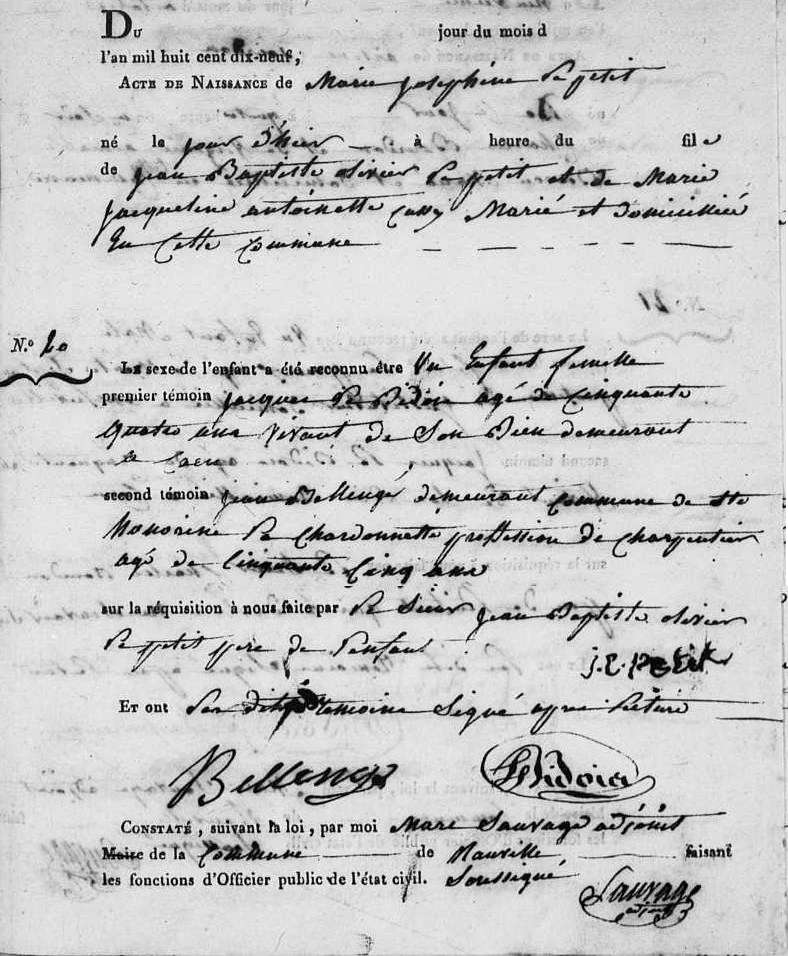 DU jour du mois d
l'an mil huit cent dix-neuf,
ACTE DE NAISSANCE de Marie josephine Le petit
né le jour d'hier à heure du file
de jean Baptiste olivier Le petit et de Marie
jacqueline antoinette Marié et domicilié
En Cette Commune
N.° 20
LE sexe de l'enfant a été reconnu être Un Enfant femelle
premier témoin jacques Le Bidois agé de Cinquante
quatre ans vivant de Son Bien demeurant
a Caen
second témoin jean Bellenger demeurant Commune de Ste
honorine La Chardonnette proffession de charpentier
agé de Cinquante Cinq ans
sur la réquisition à nous faite par Le Sieur jean Baptiste olivier
Le petit pere de l'enfant
ET ont Les dits temoins Signé apres Lecture
Bellenger Bidois
CONSTATÉ, suivant la loi, par moi Marc Sauvage adjoint
Maire de la Commune de faisant
les fonctions d'Officier public de l'état civil. Soussigné
Sauvage
adjoint